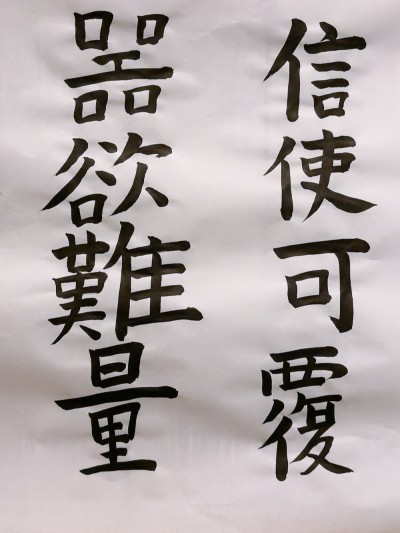 信使可覆
器欲難量